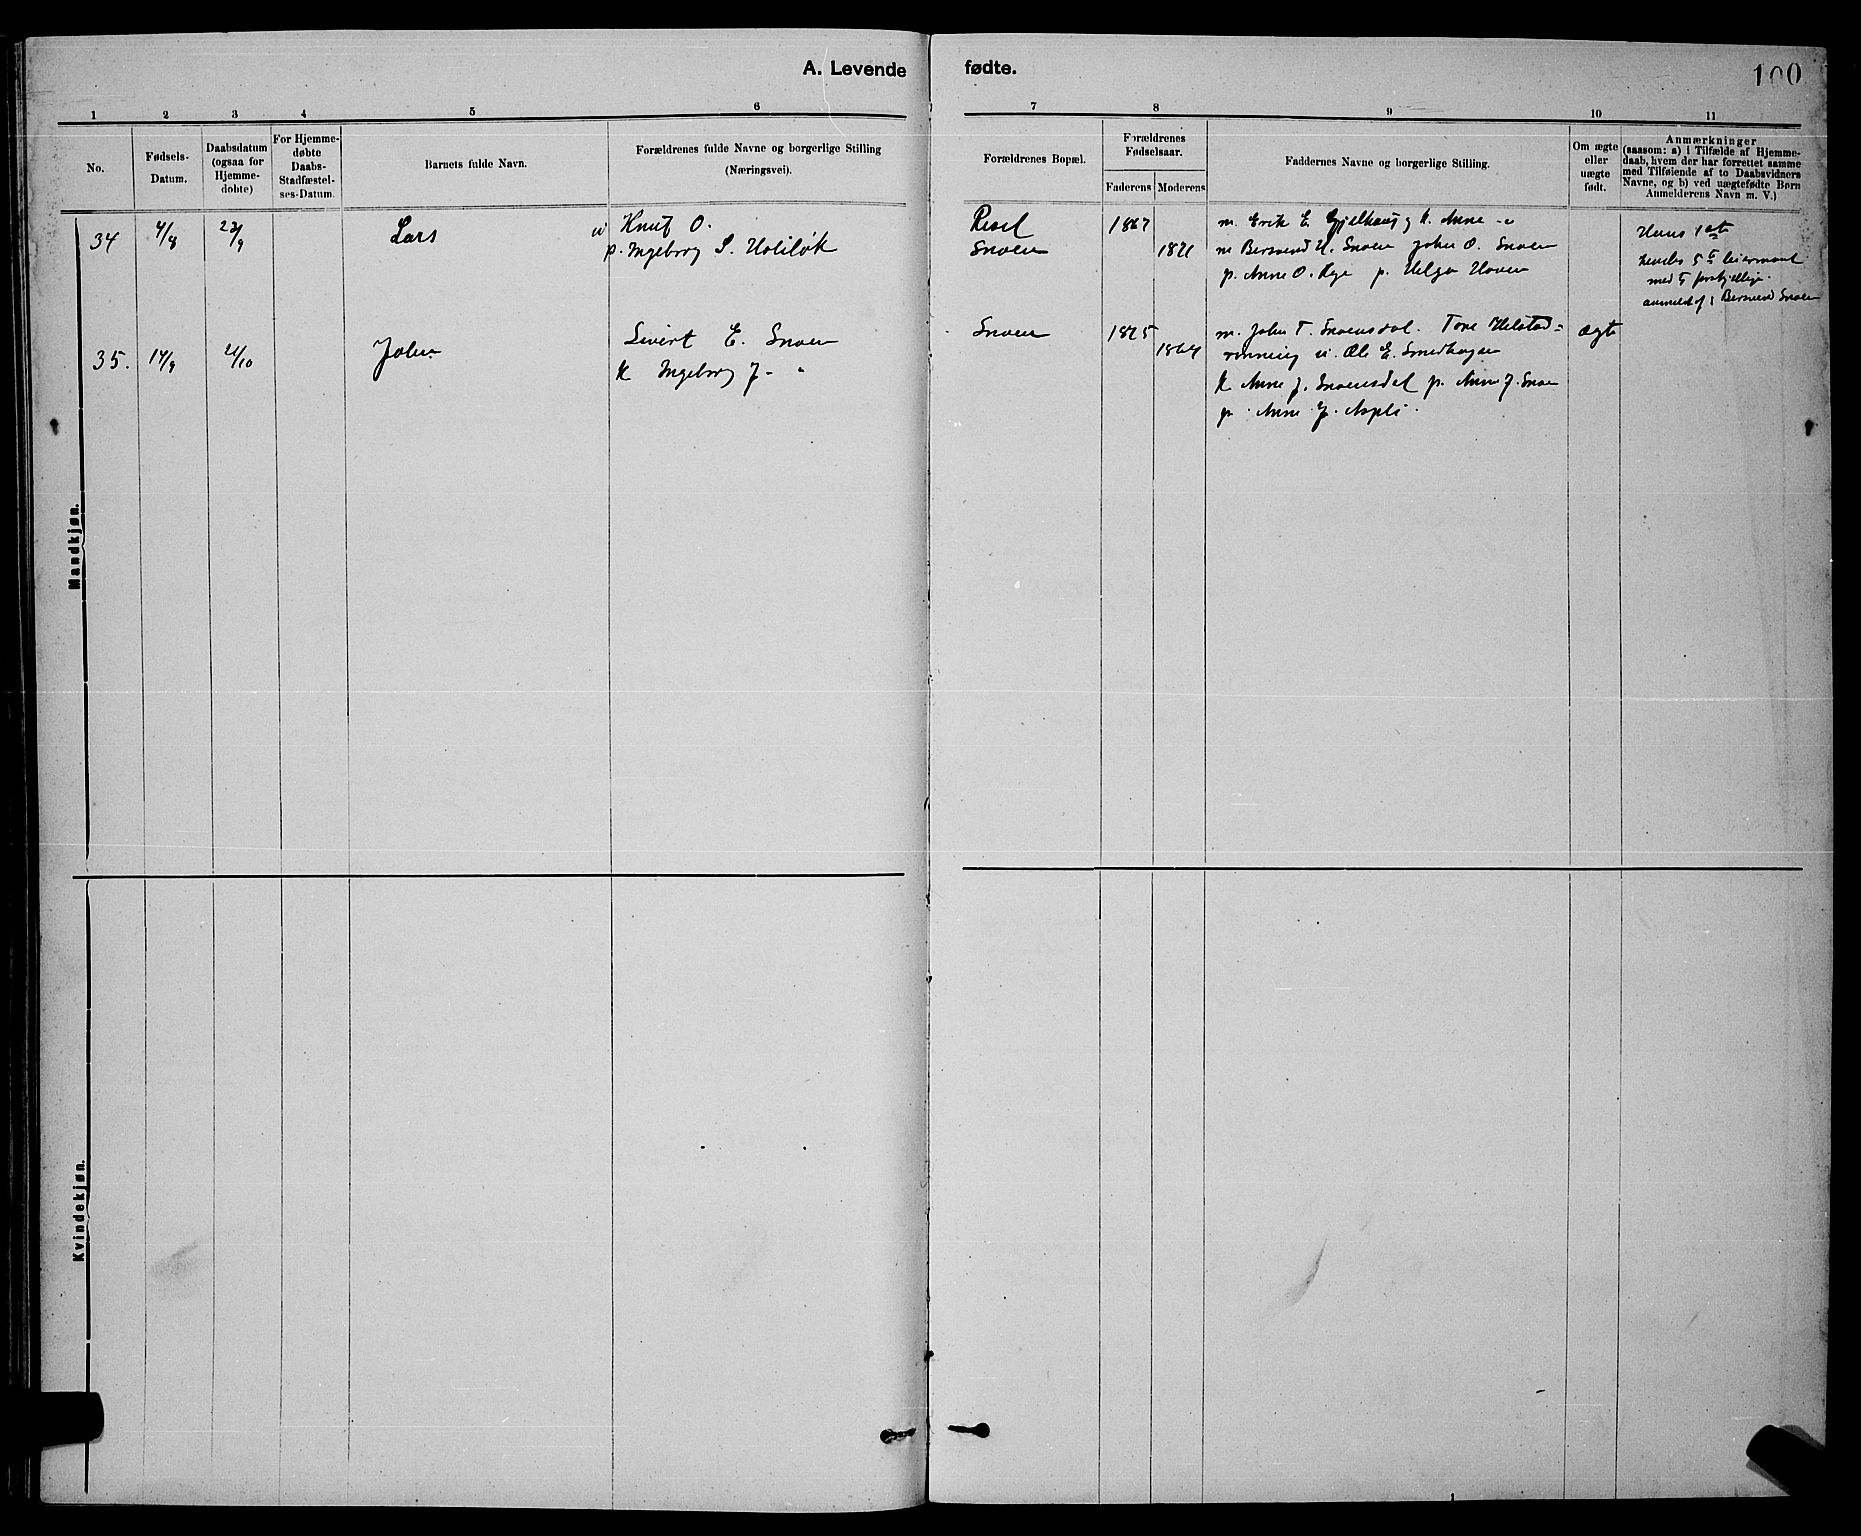 A. Levende fødte.
100
1 2 3 4 5 6 7 8 9 10 11
No.
Fødsels-
Datum.
Daabsdatum
(ogsaa for
Hjemme-
døbte)
For Hjemme-
døbte
Daabs-
Stadfæstel-
ses-Datum.
Barnets fulde Navn.
Forældrenes fulde Navne og borgerlige Stilling
(Næringsvei).
Forældrenes Bopæl.
Forældrenes
Fødselsaar.
Faderens Moderens
Faddernes Navne og borgerlige Stilling.
Om ægte
eller
uægte
født.
Anmærkninger
(saasom: a) i Tilfælde af Hjemme-
daab, hvem der har forrettet samme
med Tilføiende af to Daabsvidners
Navne, og b) ved uægtefødte Børn
Anmelderens Navn m. V.)
Mandkjøn.
34 4/8 23/9 Lars
Knut O.
p. Ingeborg S. Holiløk
Resel
Snoen
1867
1821
m. Erik E. Gjelhaug K. Anne
m Bersvend H. Snoen John O. Snoen
p. Anne O. Rye p. Helga Hoven
Hans 1ste
hendes 5te leiermaal
med 5 forskjellige.
anmeldt af Bersvend Snoen
35. 14/9 21/10 John
Sivert E. Snoen
K Ingeborg J - "
Snoen
1825
1864
m. John T. Snoensdal. Tore Helstad=
rønning u. Ole E. Smedhagen
K Anne J. Snoensdal p. Anne J. Snoen
p. Anne J. Aspli.
ægte
Kvindekjøn.